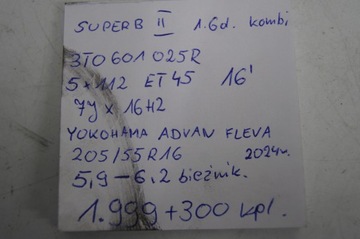 SUPERB II 1.6d. kombi
3T0601025R
5x112 ET45 16'
7J x 16H2
YOKOHAMA ADVAN FLEVA
205/55R16 2024r.
5,9-6,2 bieżnik.
1.999+300 kpl.